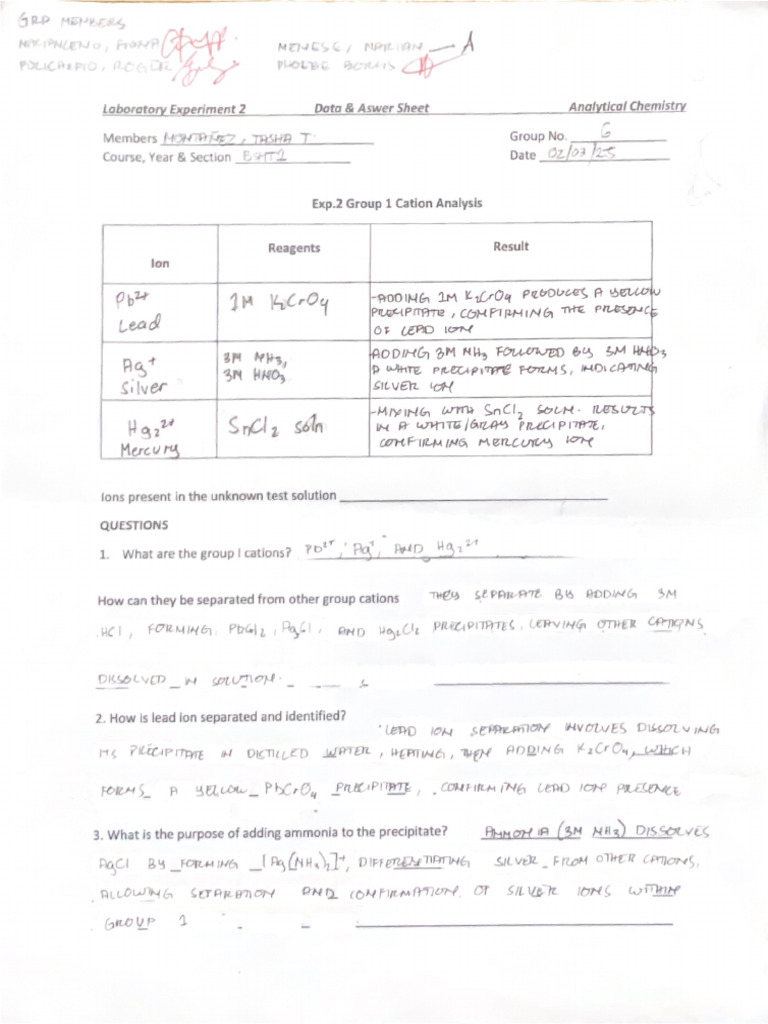 GRP MEMBERS
MENESE, MARIAN
POLICARPIO, ROGER
PHOEBE
Laboratory Experiment 2 Data & Aswer Sheet Analytical Chemistry
Members MONTAÑEZ, TASHA T. Group No. 6
Course, Year & Section Date 02/07/25
Exp.2 Group 1 Cation Analysis
Ion Reagents Result
Pb²⁺ Lead
1M K₂CrO₄
-ADDING 1M K₂CrO₄ PRODUCES A YELLOW
PRECIPITATE, CONFIRMING THE PRESENCE
OF LEAD ION
Ag⁺ Silver
3M NH₃,
3M HNO₃
ADDING 3M NH₃ FOLLOWED BY 3M HNO₃
A WHITE PRECIPITATE FORMS, INDICATING
SILVER ION
Hg₂²⁺ Mercury
SnCl₂ soln
-MIXING WITH SnCl₂ SOLN. RESULTS
IN A WHITE/GRAY PRECIPITATE,
CONFIRMING MERCURY ION
Ions present in the unknown test solution
QUESTIONS
1. What are the group I cations? Pb²⁺, Ag⁺, AND Hg₂²⁺
How can they be separated from other group cations THEY SEPARATE BY ADDING 3M
HCl, FORMING PbCl₂, AgCl, AND Hg₂Cl₂ PRECIPITATES, LEAVING OTHER CATIONS
DISSOLVED IN SOLUTION.
2. How is lead ion separated and identified?
LEAD ION SEPARATION INVOLVES DISSOLVING
ITS PRECIPITATE IN DISTILLED WATER, HEATING, THEN ADDING K₂CrO₄, WHICH
FORMS A YELLOW PbCrO₄ PRECIPITATE, CONFIRMING LEAD ION PRESENCE
3. What is the purpose of adding ammonia to the precipitate? AMMONIA (3M NH3) DISSOLVES
AgCl BY FORMING [Ag(NH₃)₂]⁺, DIFFERENTIATING SILVER FROM OTHER CATIONS,
ALLOWING SEPARATION AND CONFIRMATION OF SILVER IONS WITHIN
GROUP 1